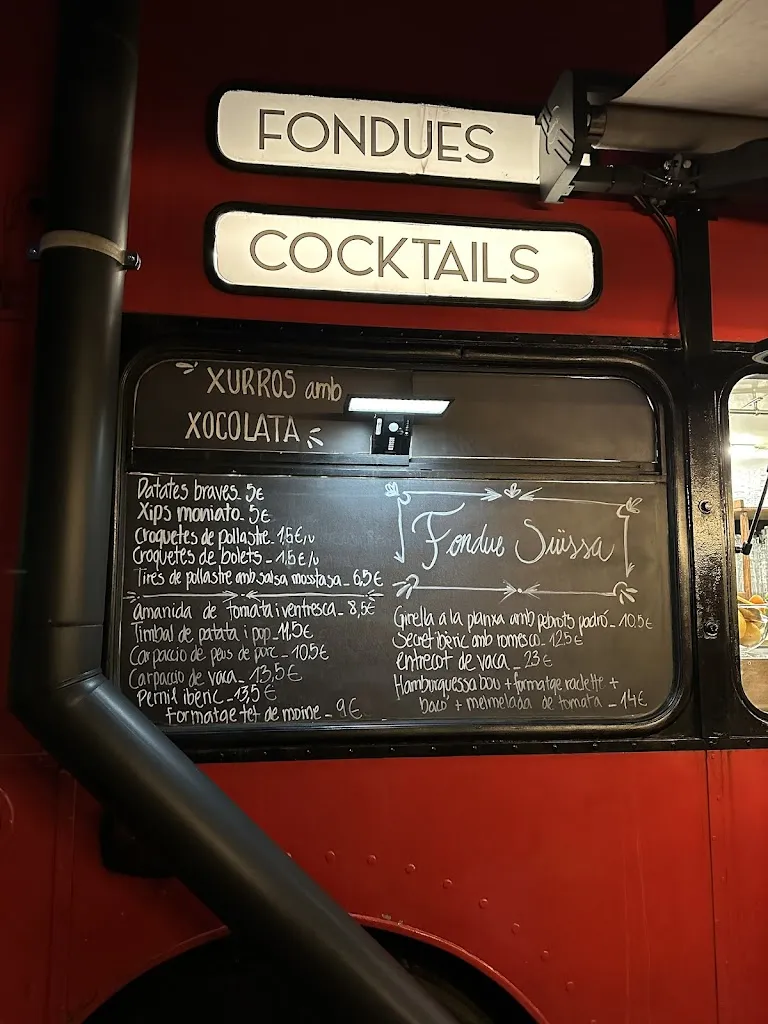 FONDUES
COCKTAILS
XURROS amb
XOCOLATA
Patates braves_ 5€
Xips moniato_ 5€
Croquetes de pollastre_ 1,5€/u
Croquetes de bolets - 1,5€/u
Tires de pollastre amb salsa mostassa_ 6,5€
amanida de tomata i ventresca_ 8,5€
Timbal de patata i pop_ 11,5€
Carpaccio de peus de porc_ 10,5€
Carpaccio de vaca_ 13,5€
Pernil ibèric_ 13,5€
Formatge tet de moine_ 9€
Fondue Süissa
Girella a la planxa amb pebrots padró_ 10,5€
Secret ibèric amb romesco_ 12,5€
entrecot de vaca_ 23€
Hamburguessa bou + formatge raclette +
bacó + melmelada de tomata_ 14€